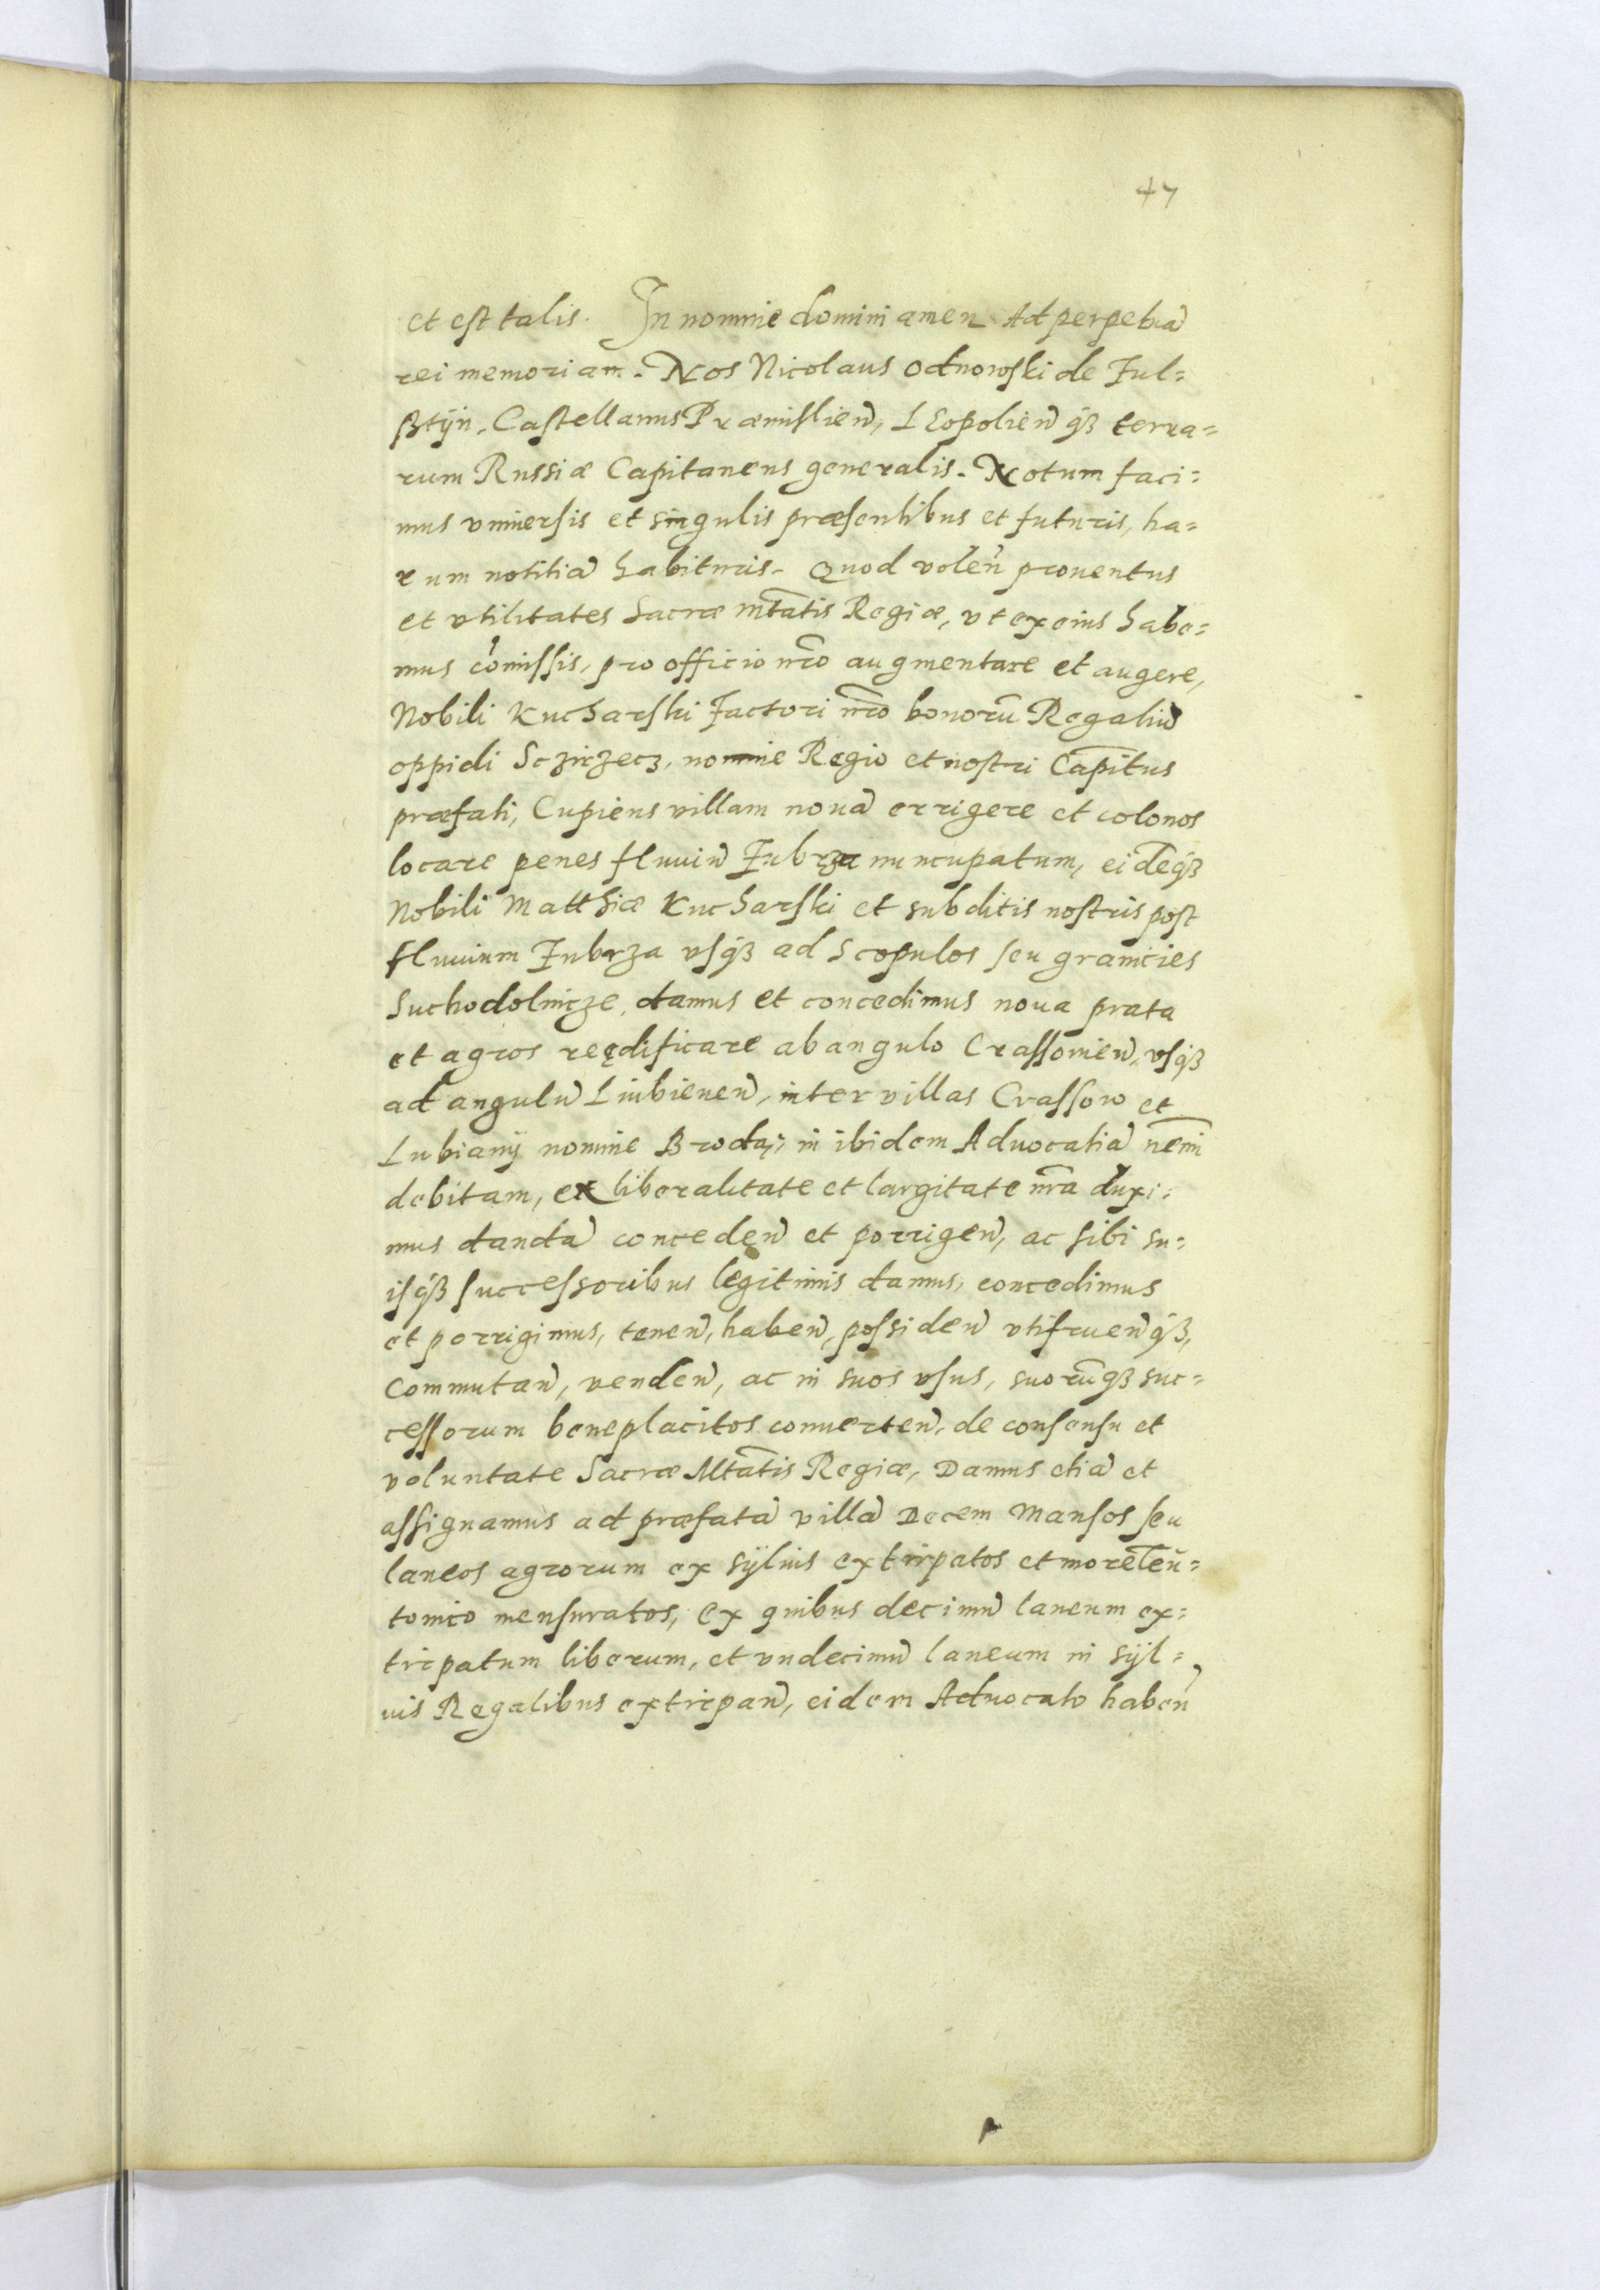 47
et est talis. In nomine domini amen Ad perpetuã
rei memoriam. Nos Nicolaus Odnowski de Ful=
sztÿn, Castellanus Præmislieñ, Leopolieñ qꝫ terra=
rum Russiæ Capitaneus generalis. Notum faci=
mus vniuersis et singulis præsentibus et futuris, ha=
rum notitiã habituris. Quod voleñ prouentus
et vtilitates Sacræ Mtatis Regiæ, vt ex eius habe=
mus cõmissis, pro officio nr̃o augmentare et augere,
Nobili Kucharski Factori nr̃o bonorũ Regaliũ
oppidi Sczirzecz, nomine Regio et nostri Capitus
præfati, Cupiens villam nouã errigere et colonos
locare penes fluuiũ Fubrza nuncupatum, eidẽqꝫ
Nobili Matthiæ Kucharski et subditis nostris post
fluuium Fubrza vsqꝫ ad Scopulos seu granicies
Suchodolnicze, damus et concedimus noua prata
et agros reędificare ab angulo Crassowieñ, vsqꝫ
ad angulũ Liubieneñ, inter villas Crassow et
Lubianÿ nomine Brodaj, in ibidem Aduocatiã nemi
debitam, ex liberalitate et largitate nr̃a duxi=
mus dandã concedeñ et porrigeñ, ac sibi su=
isqꝫ successoribus legitimis damus, concedimus
et porrigimus, teneñ, habeñ, possideñ vtifrueñqꝫ,
commutañ, vendeñ, ac in suos vsus, suorũqꝫ suc=
cessorum beneplacitos conuerteñ, de consensu et
voluntate Sacræ Mtatis Regiæ, Damus etiã et
assignamus ad præfatã villã Decem Mansos seu
laneos agrorum ex sÿluis extirpatos et more teu=
tonico mensuratos, ex quibus decimũ laneum ex=
tirpatum liberum, et vndecimũ laneum in sÿl=
uis Regalibus extirpañ, eidem Aduocato habeñ